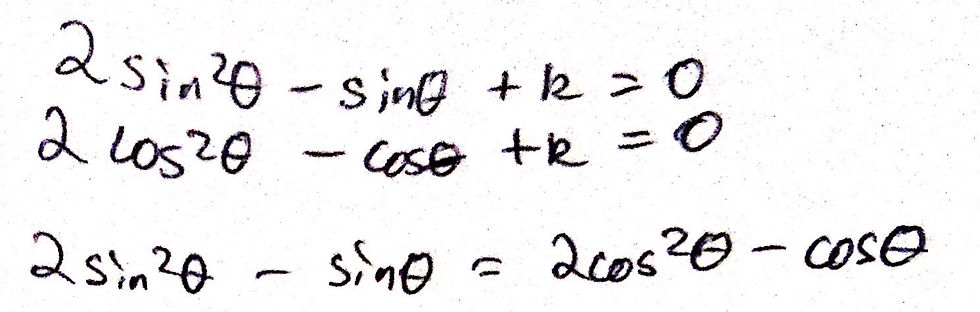 2sin²θ - sinθ + k = 0
2cos²θ - cosθ + k = 0
2sin²θ - sinθ = 2cos²θ - cosθ